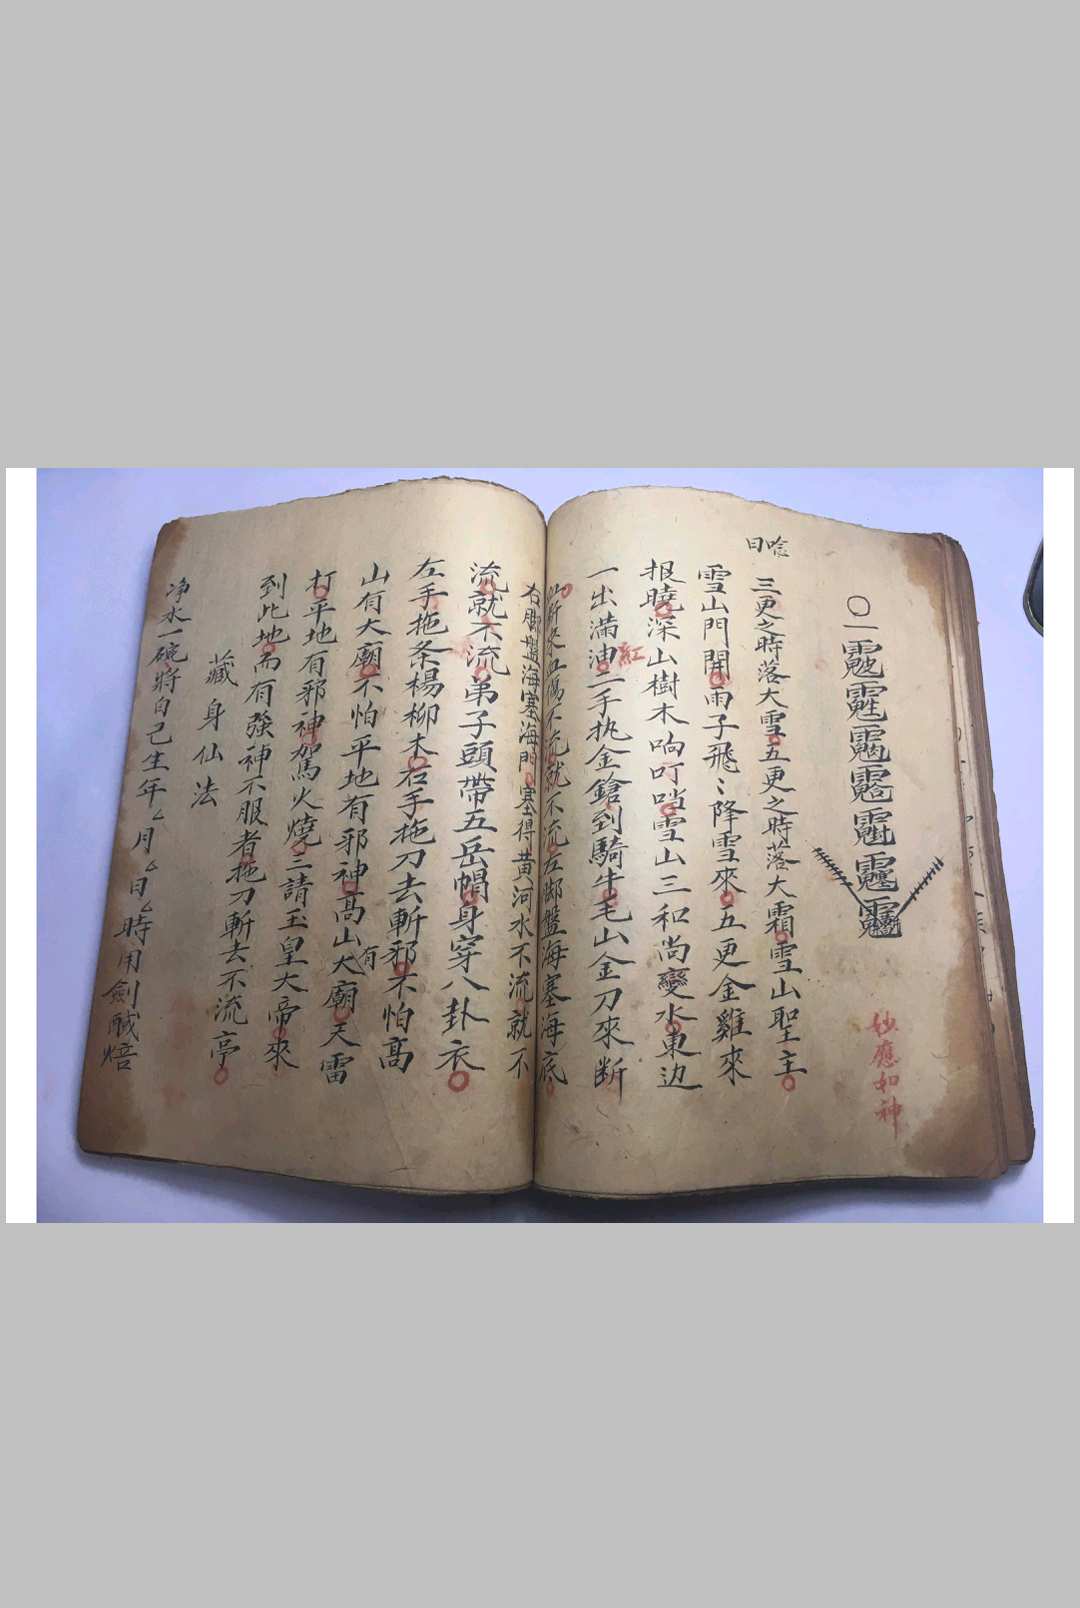 〇一
妙應如神
唸曰
三更之時落大雪五更之時落大霜雪山聖主
雪山門開雨子飛〻降雪來五更金雞來
报曉深山樹木响叮噹雪山三和尚變水東边
一出滿油二手执金鎗到騎牛毛山金刀來断
紅
不流就不流左脚盤海塞海底
右脚盤海塞海門塞得黄河水不流就不
流就不流弟子頭帶五岳帽身穿八卦衣
左手拖条楊柳木右手拖刀去斬邪不怕高
山有大廟不怕平地有邪神高山有大廟天雷
打平地有邪神駕火燒三請玉皇大帝來
到此地而有強神不服者拖刀斬去不流亭
藏身仙法
净水一碗將自己生年月日時用劍